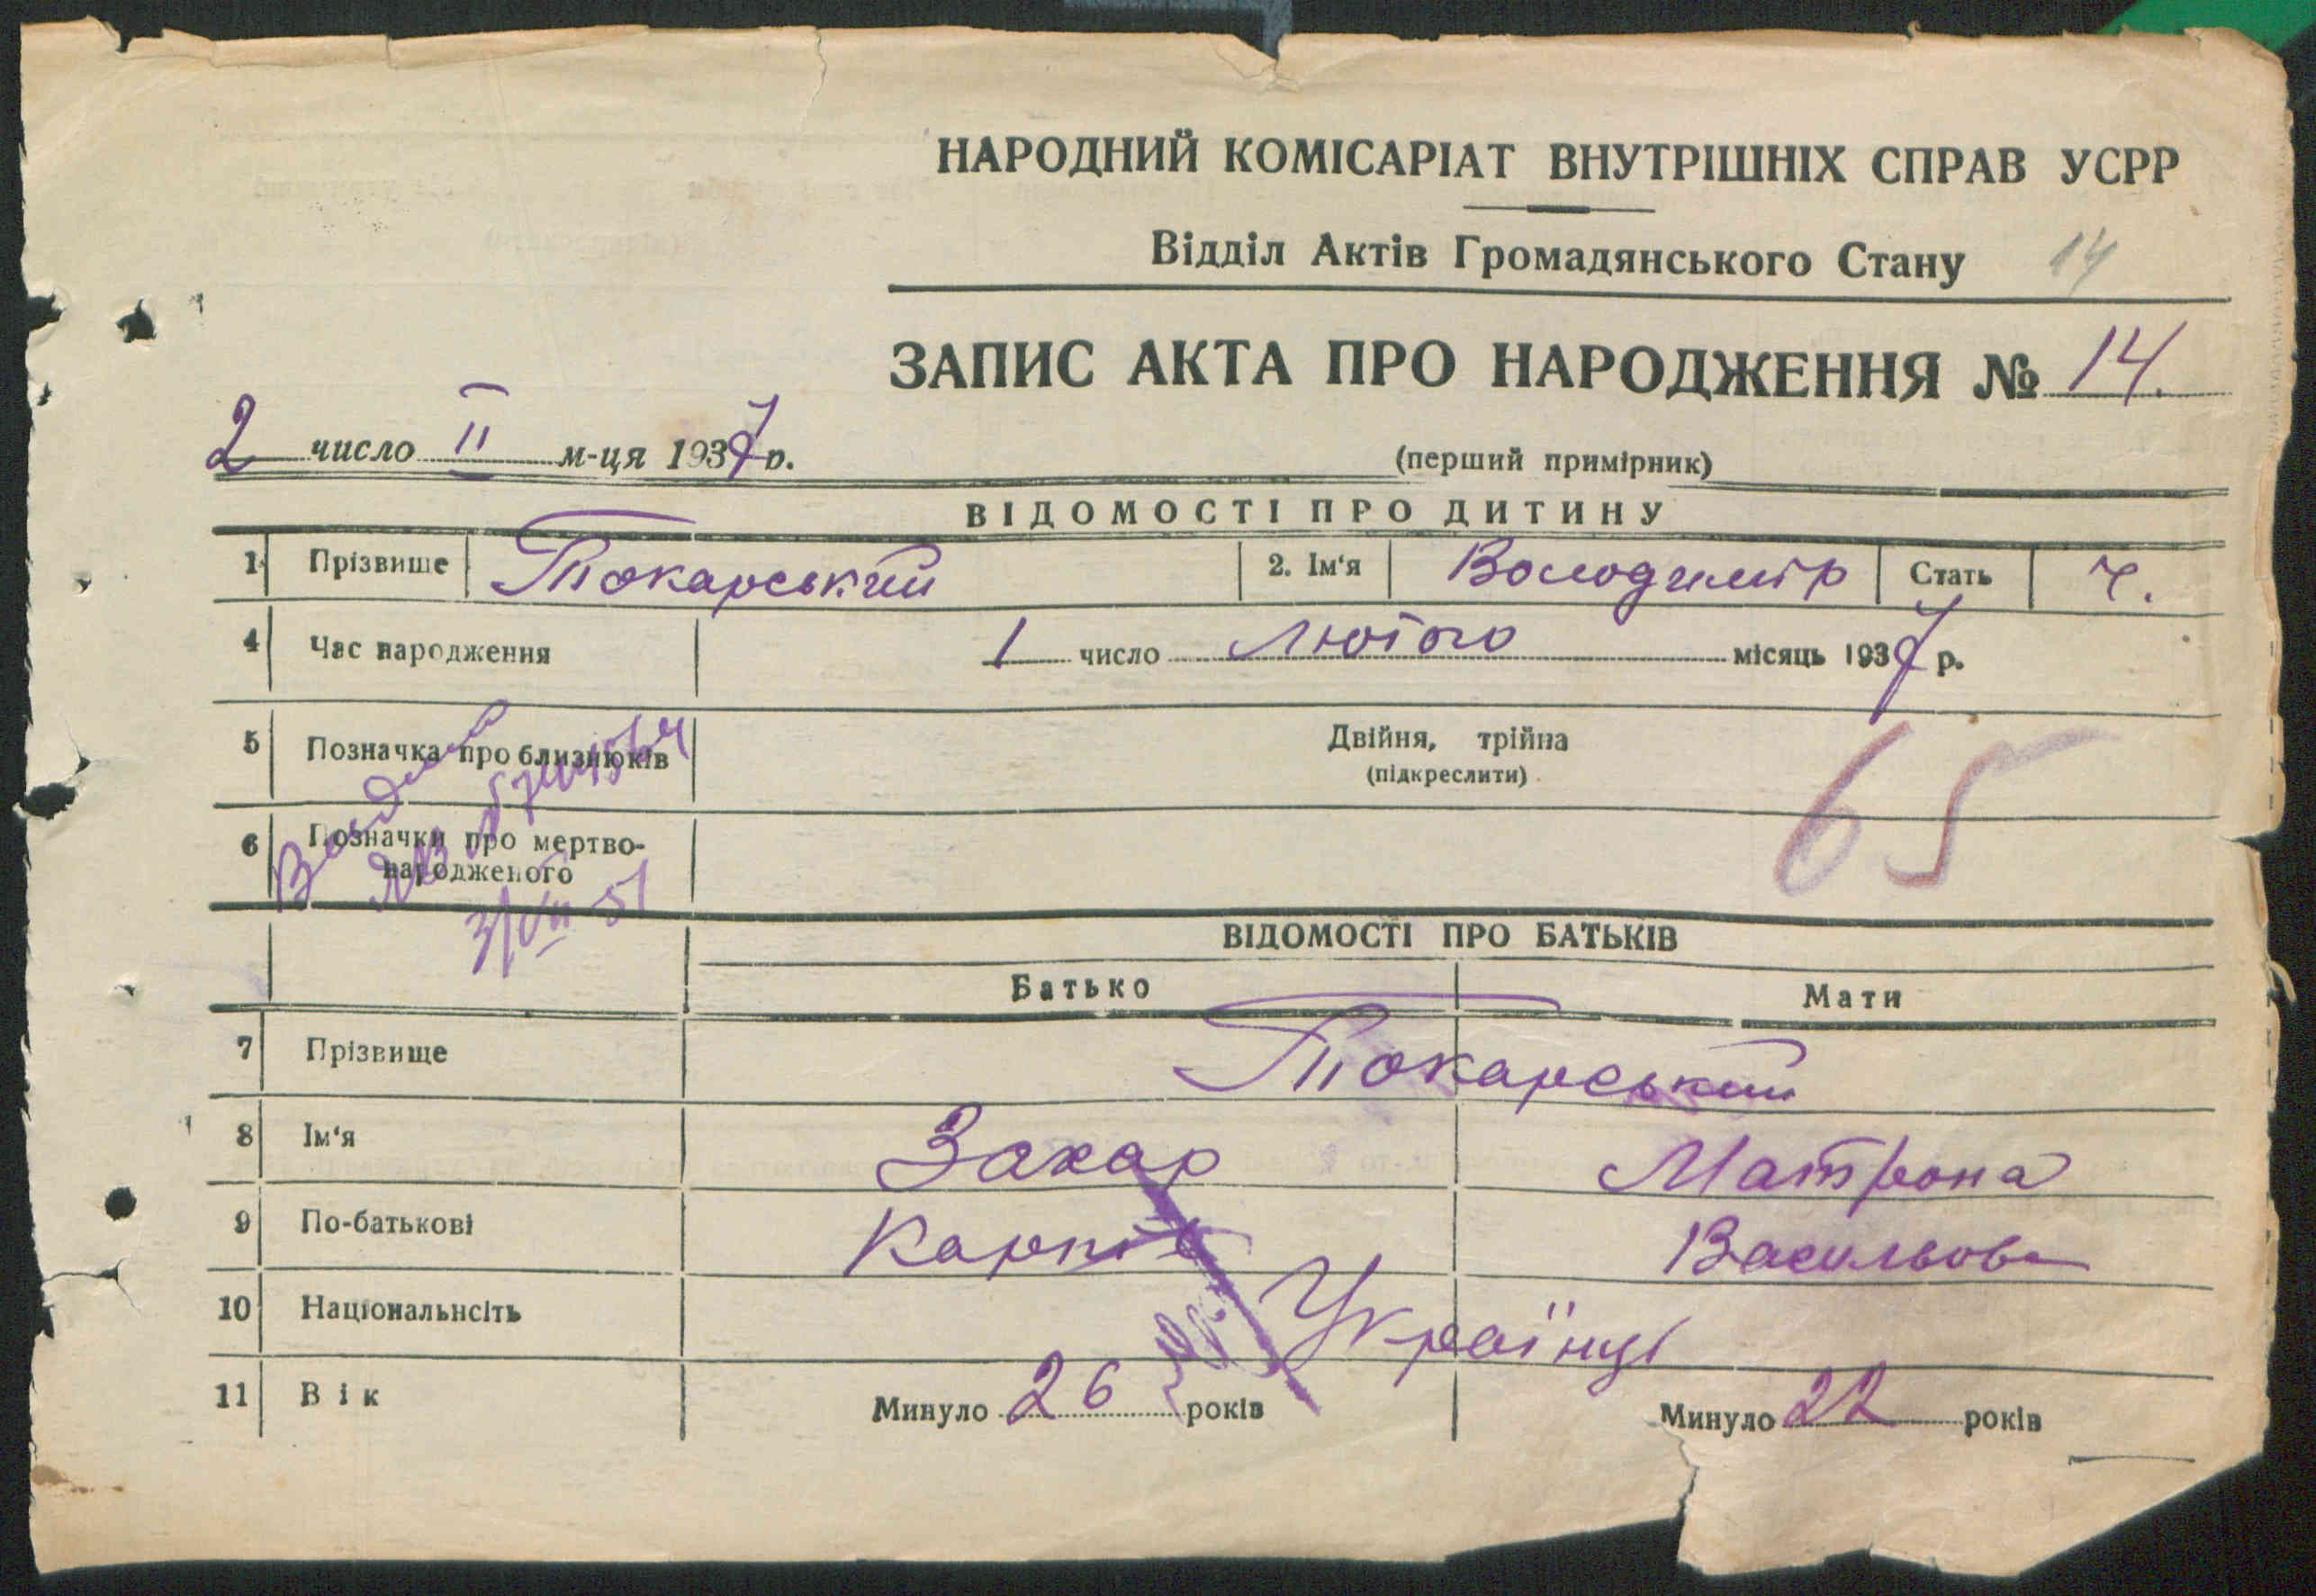 НАРОДНИЙ КОМІСАРІАТ ВНУТРІШНІХ СПРАВ УСРР
Відділ Актів Громадянського Стану 14
ЗАПИС АКТА ПРО НАРОДЖЕННЯ № 14.
2 число II м-ця 1937 р.
(перший примірник)
ВІДОМОСТІ ПРО ДИТИНУ
1 Прізвище Токарський 2. Ім‘я Володимір Стать ч.
4 Час народження 1 число Лютого місяць 1937 р.
5 Позначка про близнюків Двійня, трійна
(підкреслити)
65
6 Позначки про мертво-
народженого
3/VII-51
ВІДОМОСТІ ПРО БАТЬКІВ
Батько Мати
7 Прізвище Токарський
8 Ім‘я Захар Матрона
9 По-батькові Карпів Васильова
10 Національнсіть Українці
11 Вік Минуло 26 років Минуло 22 років